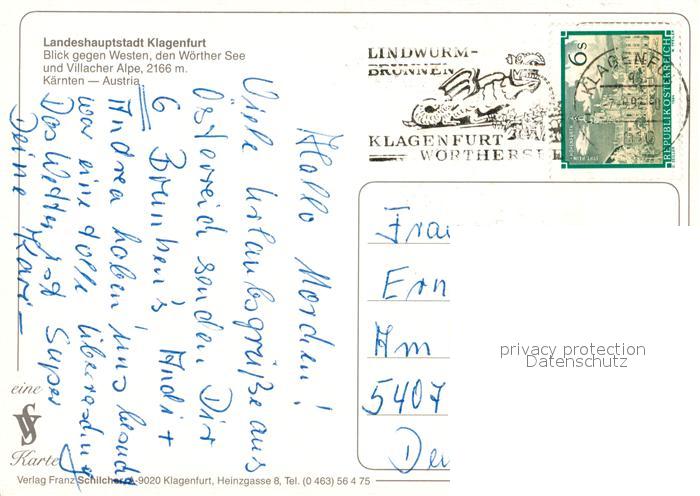 Landeshauptstadt Klagenfurt
Blick gegen Westen, den Wörther See
und Villacher Alpe, 2166 m.
Kärnten — Austria
LINDWURM-
BRUNNEN
KLAGENFURT
WÖRTHERSEE
6 S
REPUBLIK ÖSTERREICH
KLAGENF
Hallo
Viele Urlaubsgrüße aus
Österreich senden Dir
6 Andi +
Andrea haben uns besucht
war eine tolle
Das Wetter ist Super
Deine
Frau
Ern
Am
5407
Deu
privacy protection
Datenschutz
eine
Karte
Verlag Franz Schilcher, A-9020 Klagenfurt, Heinzgasse 8, Tel. (0 463) 56 4 75